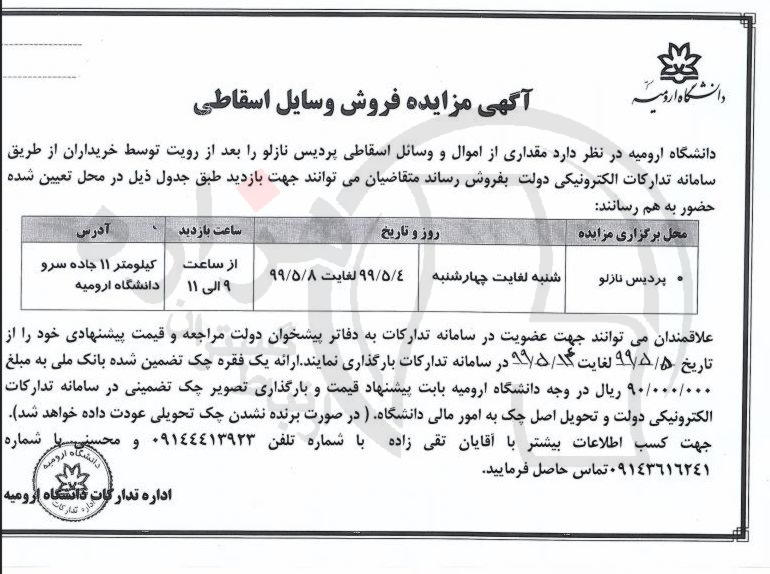 دانشگاه ارومیه
آگهی مزایده فروش وسایل اسقاطی
دانشگاه ارومیه در نظر دارد مقداری از اموال و وسائل اسقاطی پردیس نازلو را بعد از رویت توسط خریداران از طریق
سامانه تدارکات الکترونیکی دولت بفروش رساند متقاضیان می توانند جهت بازدید طبق جدول ذیل در محل تعیین شده
حضور به هم رسانند:
محل برگزاری مزایده روز و تاریخ ساعت بازدید آدرس
• پردیس نازلو شنبه لغایت چهارشنبه ۹۹/۵/۴ لغایت ۹۹/۵/۸ از ساعت ۹ الی ۱۱ کیلومتر ۱۱ جاده سرو دانشگاه ارومیه
علاقمندان می توانند جهت عضویت در سامانه تدارکات به دفاتر پیشخوان دولت مراجعه و قیمت پیشنهادی خود را از
تاریخ ۹۹/۵/۵ لغایت در سامانه تدارکات بارگذاری نمایند.ارائه یک فقره چک تضمین شده بانک ملی به مبلغ
۹۰/۰۰۰/۰۰۰ ریال در وجه دانشگاه ارومیه بابت پیشنهاد قیمت و بارگذاری تصویر چک تضمینی در سامانه تدارکات
الکترونیکی دولت و تحویل اصل چک به امور مالی دانشگاه. ( در صورت برنده نشدن چک تحویلی عودت داده خواهد شد).
جهت کسب اطلاعات بیشتر با آقایان تقی زاده با شماره تلفن ۰۹۱۴۴۴۱۳۹۲۳ و محسنی با شماره
۰۹۱۴۳۶۱۶۲۴۱تماس حاصل فرمایید.
اداره تدارکات دانشگاه ارومیه
دانشگاه ارومیه
اداره تدارکات